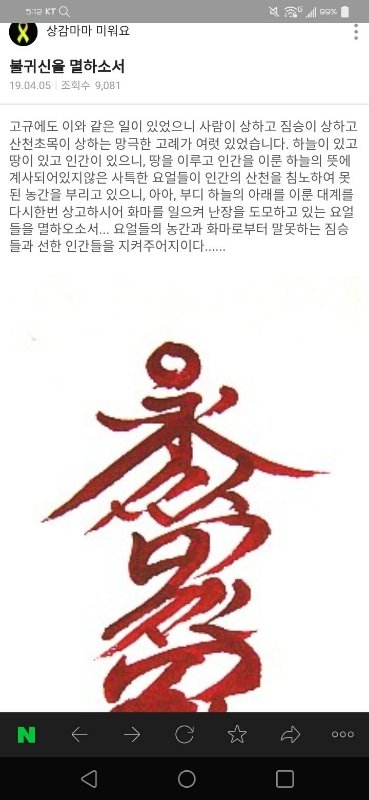 5:12 KT
99%
상감마마 미워요
불귀신을 멸하소서
19.04.05 | 조회수 9,081
고규에도 이와 같은 일이 있었으니 사람이 상하고 짐승이 상하고
산천초목이 상하는 망극한 고례가 여럿 있었습니다. 하늘이 있고
땅이 있고 인간이 있으니, 땅을 이루고 인간을 이룬 하늘의 뜻에
계사되어있지않은 사특한 요얼들이 인간의 산천을 침노하여 못
된 농간을 부리고 있으니, 아아, 부디 하늘의 아래를 이룬 대계를
다시한번 상고하시어 화마를 일으켜 난장을 도모하고 있는 요얼
들을 멸하오소서... 요얼들의 농간과 화마로부터 말못하는 짐승
들과 선한 인간들을 지켜주어지이다......
N